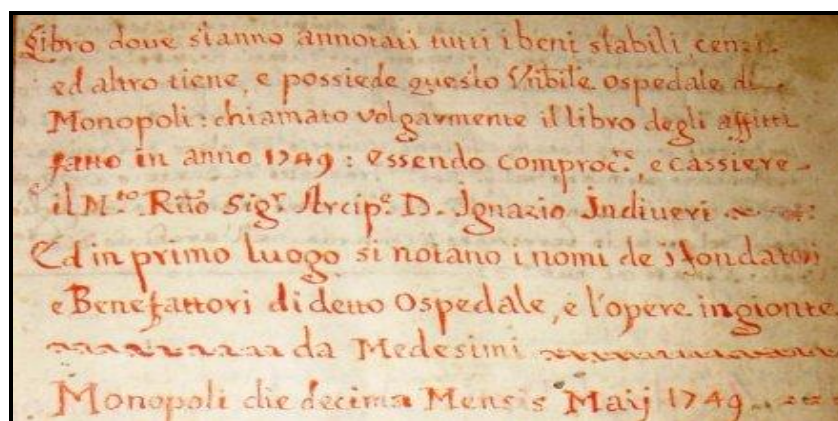 Libro dove stanno annotati tutti i beni stabili, cenzi
ed altro tiene, e possiede questo Vnbile ospedale di
Monopoli: chiamato volgarmente il libro degli affitti
fatto in anno 1749: essendo comproc:re, e cassiere
il M:to Rndo Sigr Arcipe D. Ignazio Indiveri
Ed in primo luogo si notano i nomi de fondatori
e Benefattori di detto Ospedale, e l'opere ingionte
da Medesimi
Monopoli die decima Mensis Maij 1749